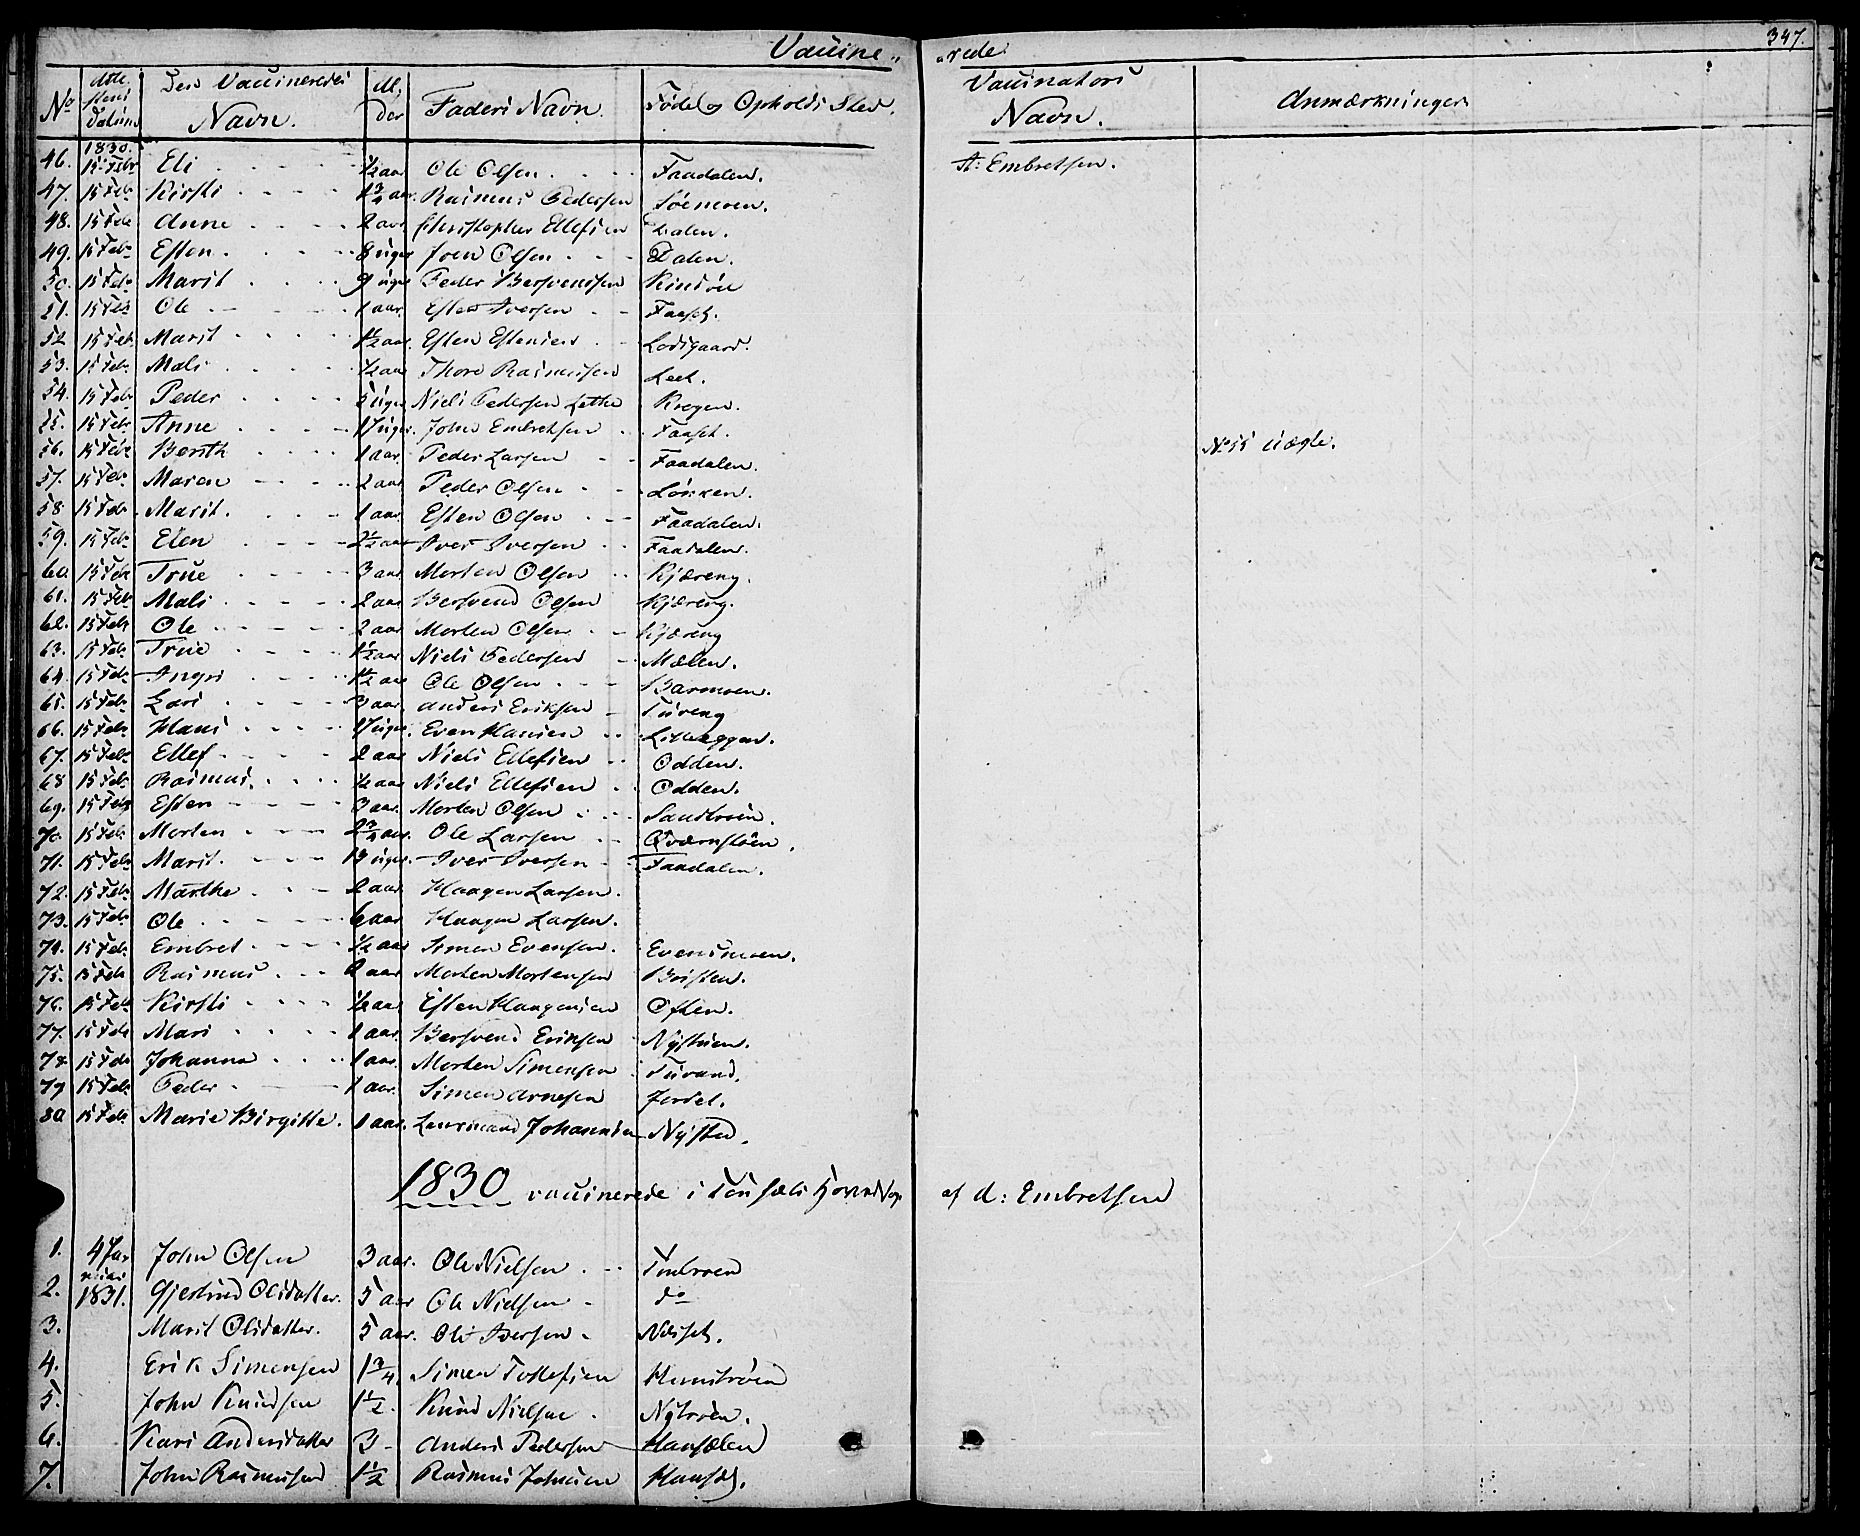 Vaccine-
-rede
347.
No
Attestens Datum
Den Vaccineredes Navn.
Al-der
Faders Navn.
Føde og Opholds Sted.
Vaccinators Navn.
Anmærkninger
1830.
46. 15 Febr Eli 1/2 aar Ole Olsen. Faadalen. A: Embretsen.
47. 15 Febr Kirsti 1 3/4 aar. Rasmus Pedersen Søemoen.
48. 15 Feb Anne 2 aar Christopher Ellefsen Dalen.
49. 15 Febr Esten. 8 uger Joen Olsen. Dalen.
50. 15 Febr Marit 9 uger Peder Bersvendsen
51. 15 Feb Ole 1 aar. Esten Iversen Faaset.
52 15 Feb. Marit 1 1/2 aar. Esten Estensen Lodsgaard.
53. 15 Febr Mali 1/2 aar Thore Rasmussen Leet.
54. 15 Febr Peder 5 uger Niels Pedersen Lethe Krogen.
55. 15 Febr Anne 17 uger. John Embretsen Faaset.
No 55 uægte.
56. 15 Febr Bereth 1 aar. Peder Larsen Faadalen.
57. 15 Febr Maren 2 aar Peder Olsen Løkken.
58 15 Febr Marit. 1 aar. Esten Olsen Faadalen.
59. 15 Feb Elen 2 1/2 aar Iver Iversen Faadalen.
60 15 Feb True 3 aar Morten Olsen Kjæreng.
61. 15 Feb Mali 2 aar Bersvend Olsen Kjæreng.
62. 15 Feb Ole 2 aar Morten Olsen Kjæreng
63. 15 Feb. True 1 1/2 aar Niels Pedersen Mælen.
64. 15 Feb. Ingri 1 1/2 aar Ole Olsen Barmoen.
65. 15 Feb. Kari 3 aar Anders Eriksen Tuveng
66. 15 Feb. Hans 17 uger. Even Hansen
67. 15 Feb. Ellef 2 aar Niels Ellefsen Odden.
68 15 Feb. Rasmus. 1/2 aar Niels Ellefsen Odden.
69. 15 Feb Esten 3 aar. Morten Olsen Sandtrøen.
70. 15 Feb. Morten 2 3/4 aar Ole Larsen Qværnstøen.
71. 15 Feb Marit. 13 uger. Iver Iversen Faadalen.
72. 15 Feb. Marthe 2 aar Haagen Larsen.
73. 15 Feb. Ole 6 aar Haagen Larsen.
74. 15 Feb. Embret 1/2 aar Simen Evensen. Evensmoen.
75. 15 Feb Rasmus. 2 aar Morten Mortensen
76. 15 Feb Kirsti 1/2 aar Esten Haagensen Østen.
77. 15 Feb Mari 1 aar Bersvend Eriksen Nystuen.
78. 15 Feb Johanna 1 aar. Morten Simensen
79 15 Feb. Peder 1 aar. Simen Arnesen Jordet.
80 15 Feb. Marie Birgitte. 1 aar. Lensmand Johannsen Nysted.
1830 vaccinerede i Tønsæts Hovedsogn af A: Embretsen
1. 4 Januar 1831. John Olsen 3 aar. Ole Nielsen Tontroen
2. Gjertrud Olsdatter. 5 aar Ole Nielsen do
3. Marit Olsdatter. 5 aar. Ole Iversen Neiset.
4. Erik Simensen 1 3/4. Simen Tollefsen Hunstrøen
5. John Knudsen 1 1/2. Knud Nielsen Nytrøen.
6. Kari Andersdatter 3 Anders Pedersen Hansælen
7. John Rasmussen 1 1/2 Rasmus Johnsen